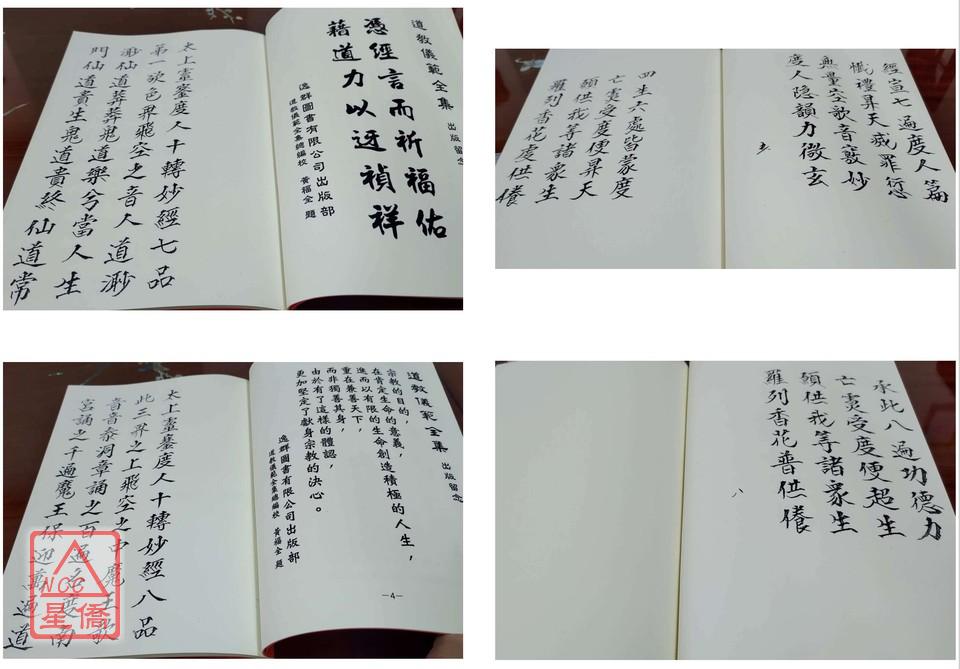 道教儀範全集 出版留念
憑經言而祈福佑
藉道力以迓禎祥
逸群圖書有限公司出版部
道教儀範全集總編校 黃福全 題
太上靈寶度人十轉妙經七品
第一欲色界飛空之音人道渺
渺仙道莽莽鬼道樂兮當人生
門仙道貴生鬼道貴終仙道常
經宣七遍度人篇
懺禮昇天滅罪愆
無量空歌音竅妙
度人隱韻力微玄
四生六處皆蒙度
亡靈受度便昇天
願供我等諸眾生
羅列香花處供養
道教儀範全集 出版留念
宗教的目的，
在肯定生命的意義，
進而以有限的生命創造積極的人生，
重在兼善天下，
而非獨善其身，
由於有了這樣的體認，
更加堅定了獻身宗教的決心。
逸群圖書有限公司出版部
道教儀範全集總編校 黃福全 題
—4—
太上靈寶度人十轉妙經八品
此三界之上飛空之中魔王歌
音音參洞章誦之百遍名度南
宮誦之千遍魔王保迎萬遍道
NCC
星僑
承此八遍功德力
亡靈受度便超生
願供我等諸眾生
羅列香花普供養
八